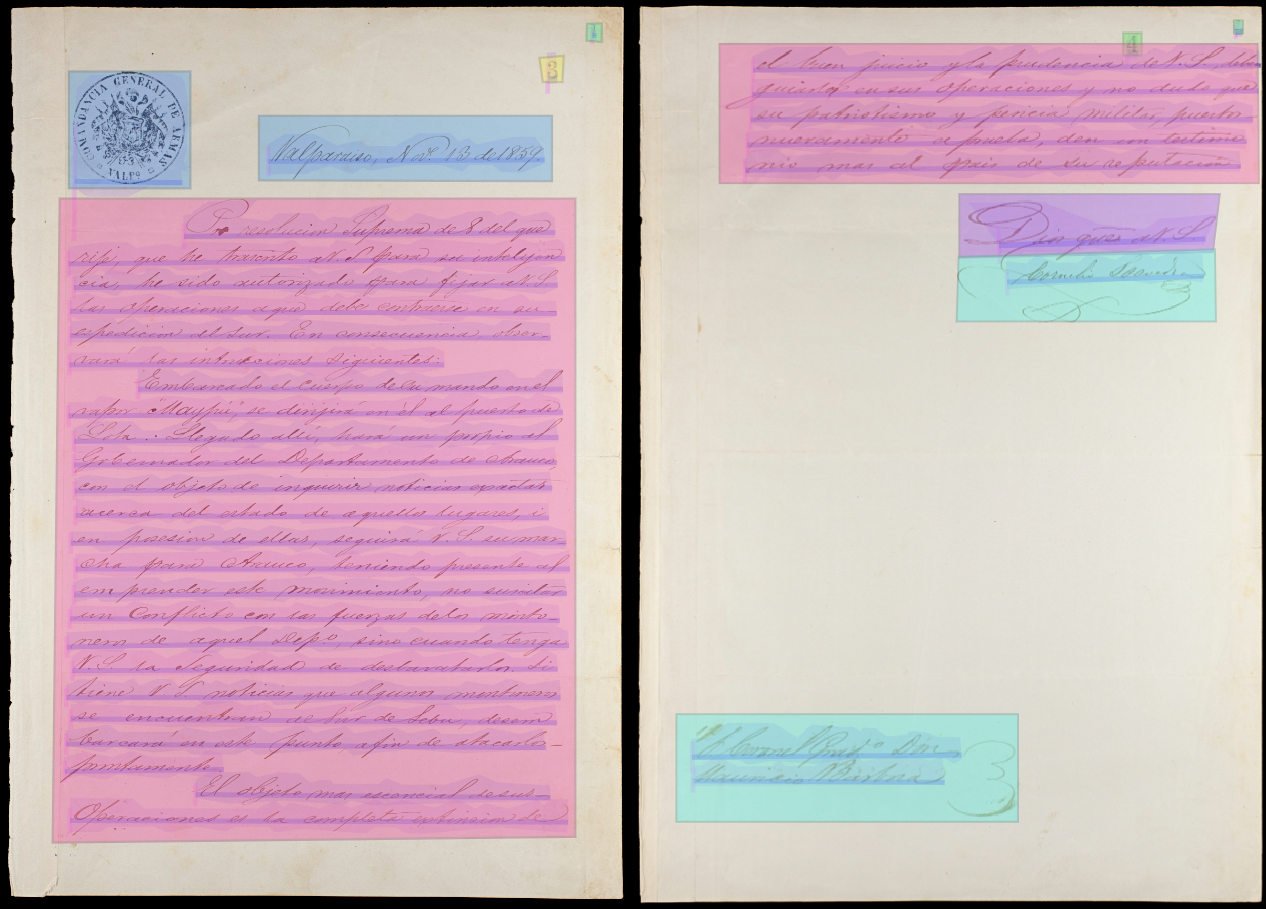 1
3
COMANDANCIA GENERAL DE ARMAS
VALPº
Valparaiso, Nov. 13 de 1859.
Por resolucion Suprema de 8 del que
rije, que he trascrito a V.S. para su intelijen
cia, he sido autorizado para fijar a V.S.
las operaciones a que debe contraerse en su
espedicion al Sur. En consecuencia, obser-
vará las intrucciones siguientes:
Embarcado el cuerpo de su mando en el
vapor "Maypú", se dirijirá en él al puerto de
Lota. Llegado allí, hará un propio al
Gobernador del Departamento de Arauco,
con el objeto de inquirir noticias exactas
acerca del estado de aquellos lugares, i
en posesion de ellas, seguirá V.S. su mar
cha para Arauco, teniendo presente al
emprender este movimiento, no suscitar
un Conflicto con las fuerzas de los monto-
neros de aquel Depº, sino cuando tenga
V.S. la Seguridad de desbaratarlos. Si
tiene V.S. noticias que algunos montoneros
se encuentran al Sur de Lebu, desem
barcará en este punto a fin de atacarlos
prontamente.
El objeto mas escencial de sus
Operaciones es la completa estincion de
4
el buen juicio y la prudencia de V.S. deben
guiarlo en sus operaciones y no dudo que
su patriotismo y pericia militar, puestos
nuevamente a prueba, den un testimo
nio mas al pais de su reputacion
Dios gue a V.S.
Cornelio Saavedra
Al Coronel Grad.º Don
Mauricio Barbosa